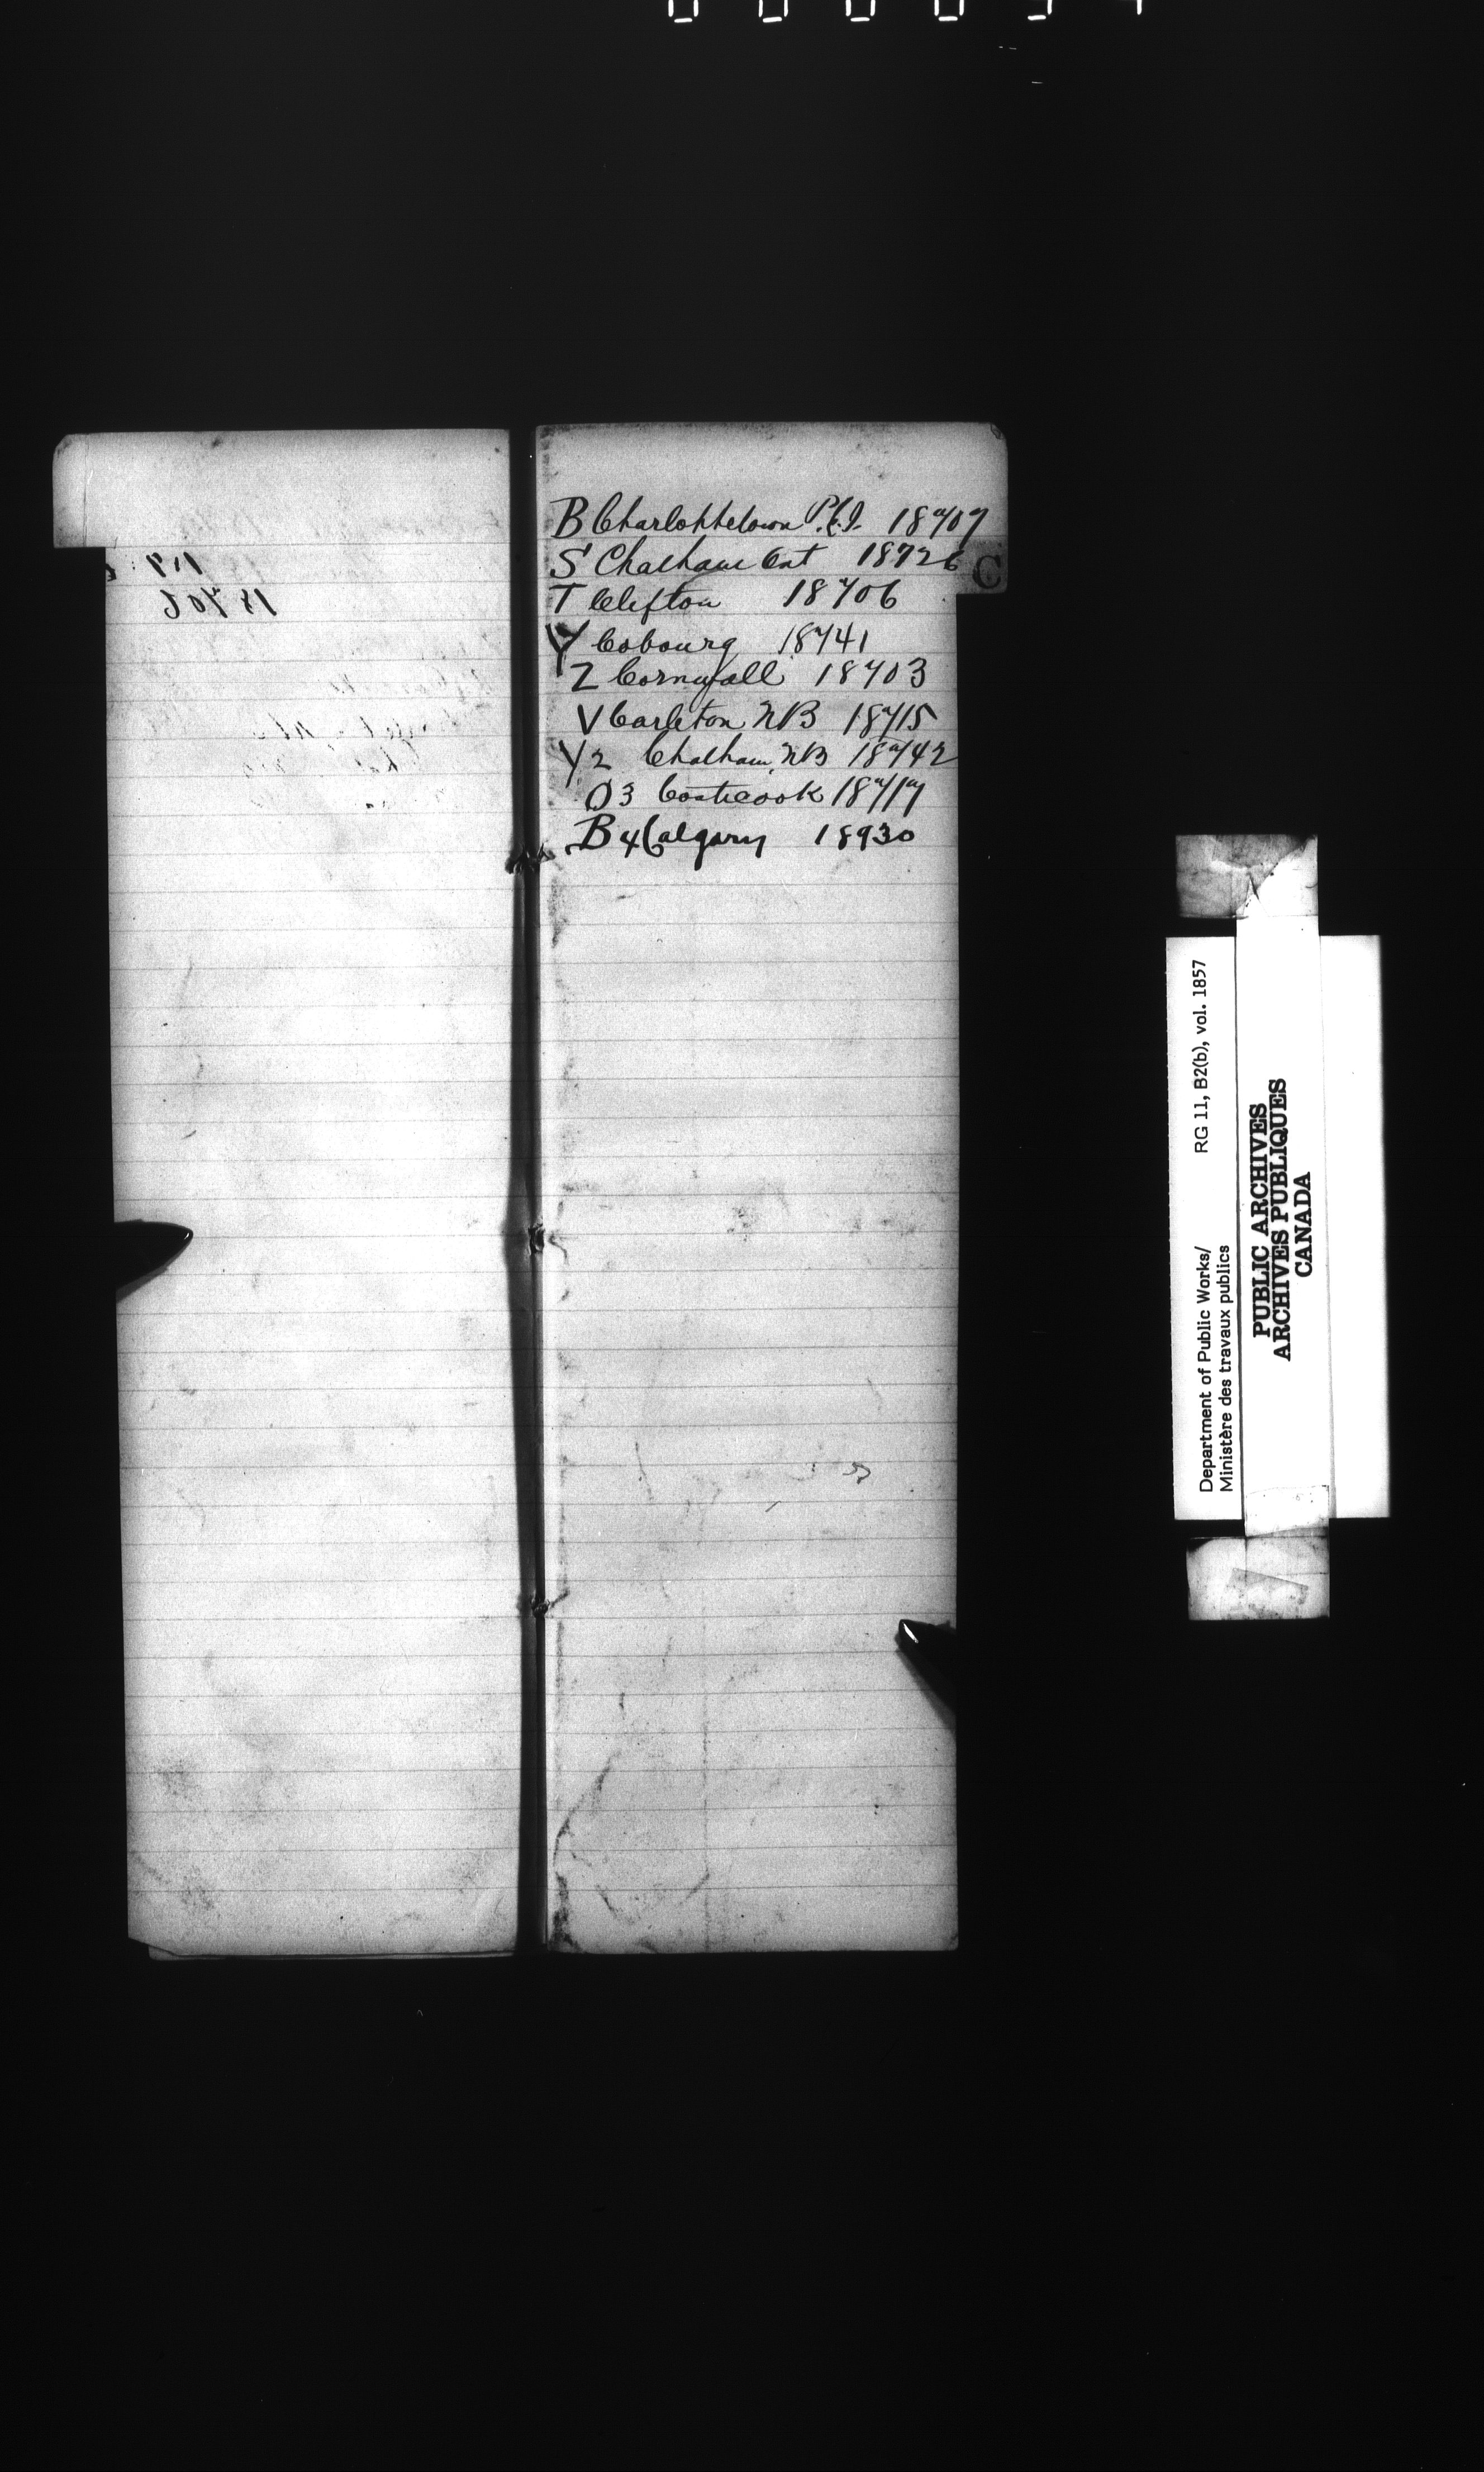 B Charlottetown P.E.I. 18707
S Chatham Ont 18726
C
T Clifton 18706
Y Cobourg 18741
Z Cornwall 18703
V Carleton NB 18715
Y2 Chatham NB 18742
O3 Coaticook 18717
B4 Calgary 18930
Department of Public Works/ RG 11, B2(b), vol. 1857
Ministère des travaux publics
PUBLIC ARCHIVES
ARCHIVES PUBLIQUES
CANADA